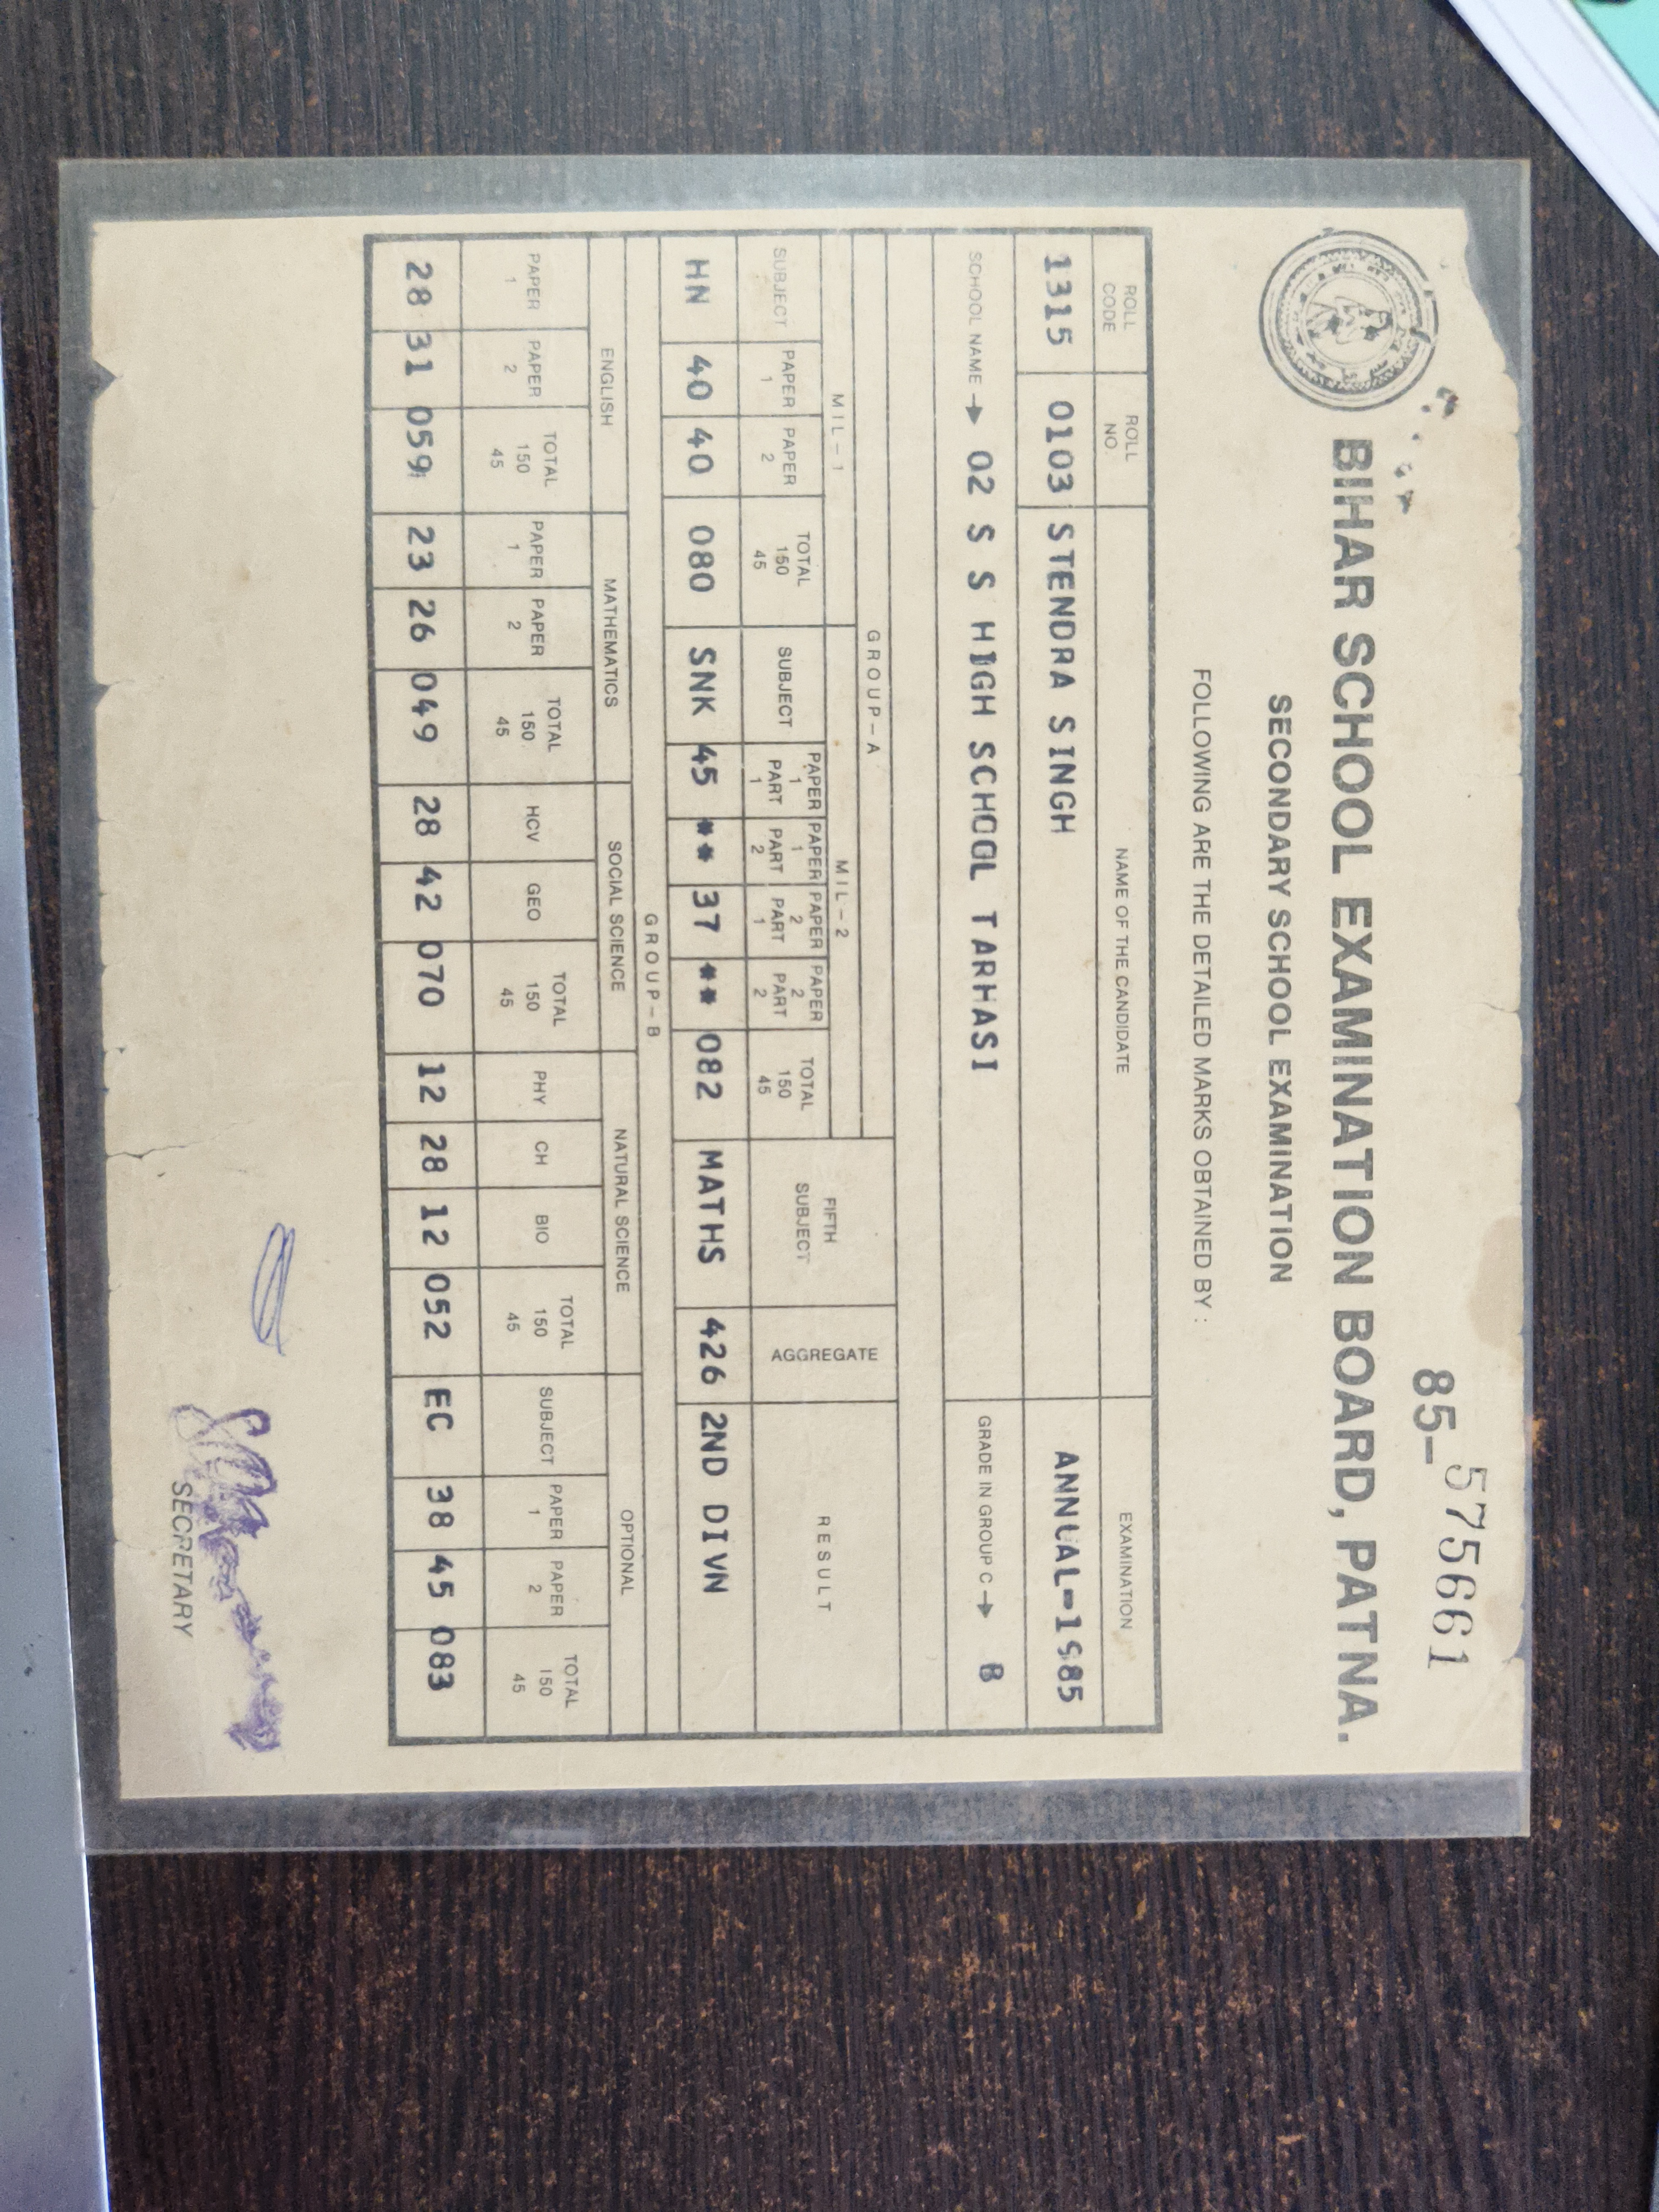 85-575661
BIHAR SCHOOL EXAMINATION BOARD, PATNA.
SECONDARY SCHOOL EXAMINATION
FOLLOWING ARE THE DETAILED MARKS OBTAINED BY :
ROLL CODE ROLL NO. NAME OF THE CANDIDATE EXAMINATION
1315 0103 STENDRA SINGH ANNUAL-1985
SCHOOL NAME → 02 S S HIGH SCHOOL TARHASI GRADE IN GROUP C → B
GROUP-A
MIL-1 MIL-2 FIFTH SUBJECT AGGREGATE RESULT
SUBJECT PAPER 1 PAPER 2 TOTAL 150 45 SUBJECT PAPER 1 PART 1 PAPER 1 PART 2 PAPER 2 PART 1 PAPER 2 PART 2 TOTAL 150 45
HN 40 40 080 SNK 45 ** 37 ** 082 MATHS 426 2ND DIVN
GROUP-B
ENGLISH MATHEMATICS SOCIAL SCIENCE NATURAL SCIENCE OPTIONAL
PAPER 1 PAPER 2 TOTAL 150 45 PAPER 1 PAPER 2 TOTAL 150 45 HCV GEO TOTAL 150 45 PHY CH BIO TOTAL 150 45 SUBJECT PAPER 1 PAPER 2 TOTAL 150 45
28 31 059 23 26 049 28 42 070 12 28 12 052 EC 38 45 083
SECRETARY